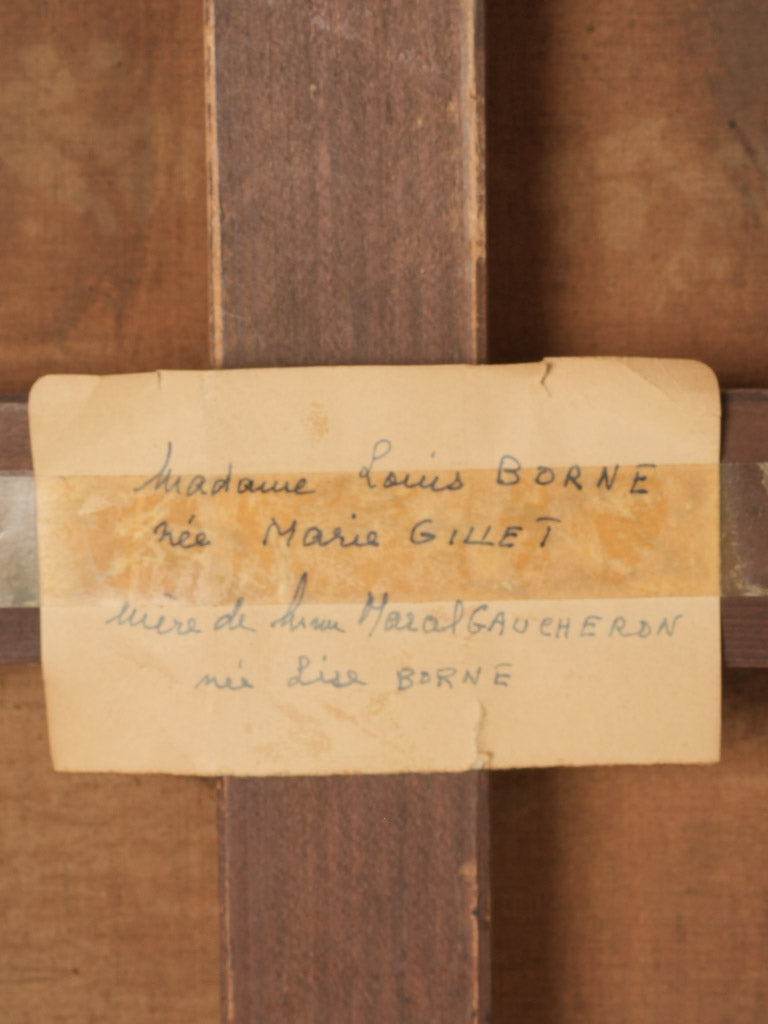 Madame Louis BORNE
née Marie GILLET
mère de Mme GAUCHERON
née Lise BORNE